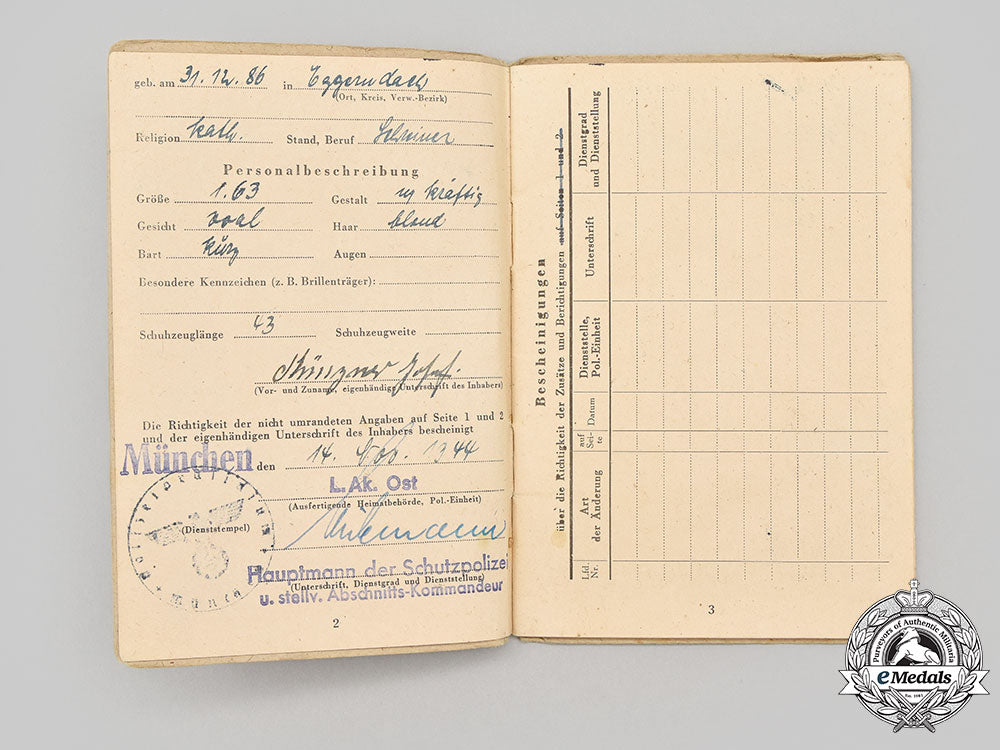 geb. am 31.12.86 in
(Ort, Kreis, Verw.-Bezirk)
Religion kath. Stand, Beruf
Personalbeschreibung
Größe 1.63 Gestalt kräftig
Gesicht oval Haar blond
Bart kurz Augen
Besondere Kennzeichen (z. B. Brillenträger):
Schuhzeuglänge 43 Schuhzeugweite
Josef
(Vor- und Zuname, eigenhändige Unterschrift des Inhabers)
Die Richtigkeit der nicht umrandeten Angaben auf Seite 1 und 2
und der eigenhändigen Unterschrift des Inhabers bescheinigt
München den 14. 1944
L. Ak. Ost
(Ausfertigende Heimatbehörde, Pol.-Einheit)
(Dienststempel)
Hauptmann der Schutzpolizei
(Unterschrift, Dienstgrad und Dienststellung)
u. stellv. Abschnitts-Kommandeur
2
Bescheinigungen
über die Richtigkeit der Zusätze und Berichtigungen auf Seiten 1 und 2
Lfd.
Nr.
Art
der Änderung
auf
Sei-
te
Datum
Dienststelle,
Pol.-Einheit
Unterschrift
Dienstgrad
und Dienststellung
3
Purveyors of Authentic Militaria
eMedals